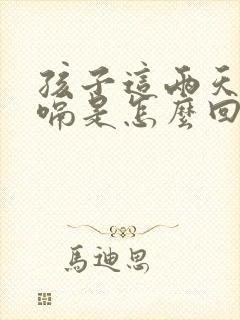 孩子這兩天
嗝是怎麼回
馬迪思